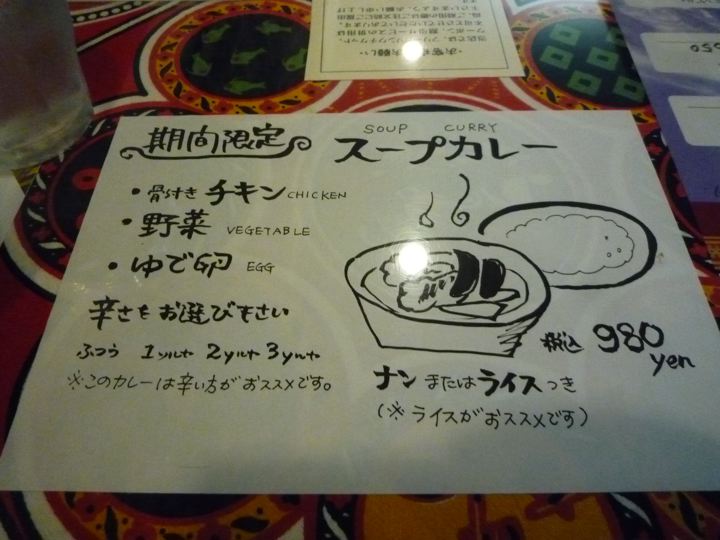 期間限定
SOUP CURRY
スープカレー
• 骨付き チキン CHICKEN
• 野菜 VEGETABLE
• ゆで卵 EGG
辛さを お選び下さい
ふつう 1ソルヤ 2ソルヤ 3ソルヤ
※このカレーは辛い方が おススメです。
税込 980 yen
ナン または ライス つき
(※ ライスが おススメです)
650